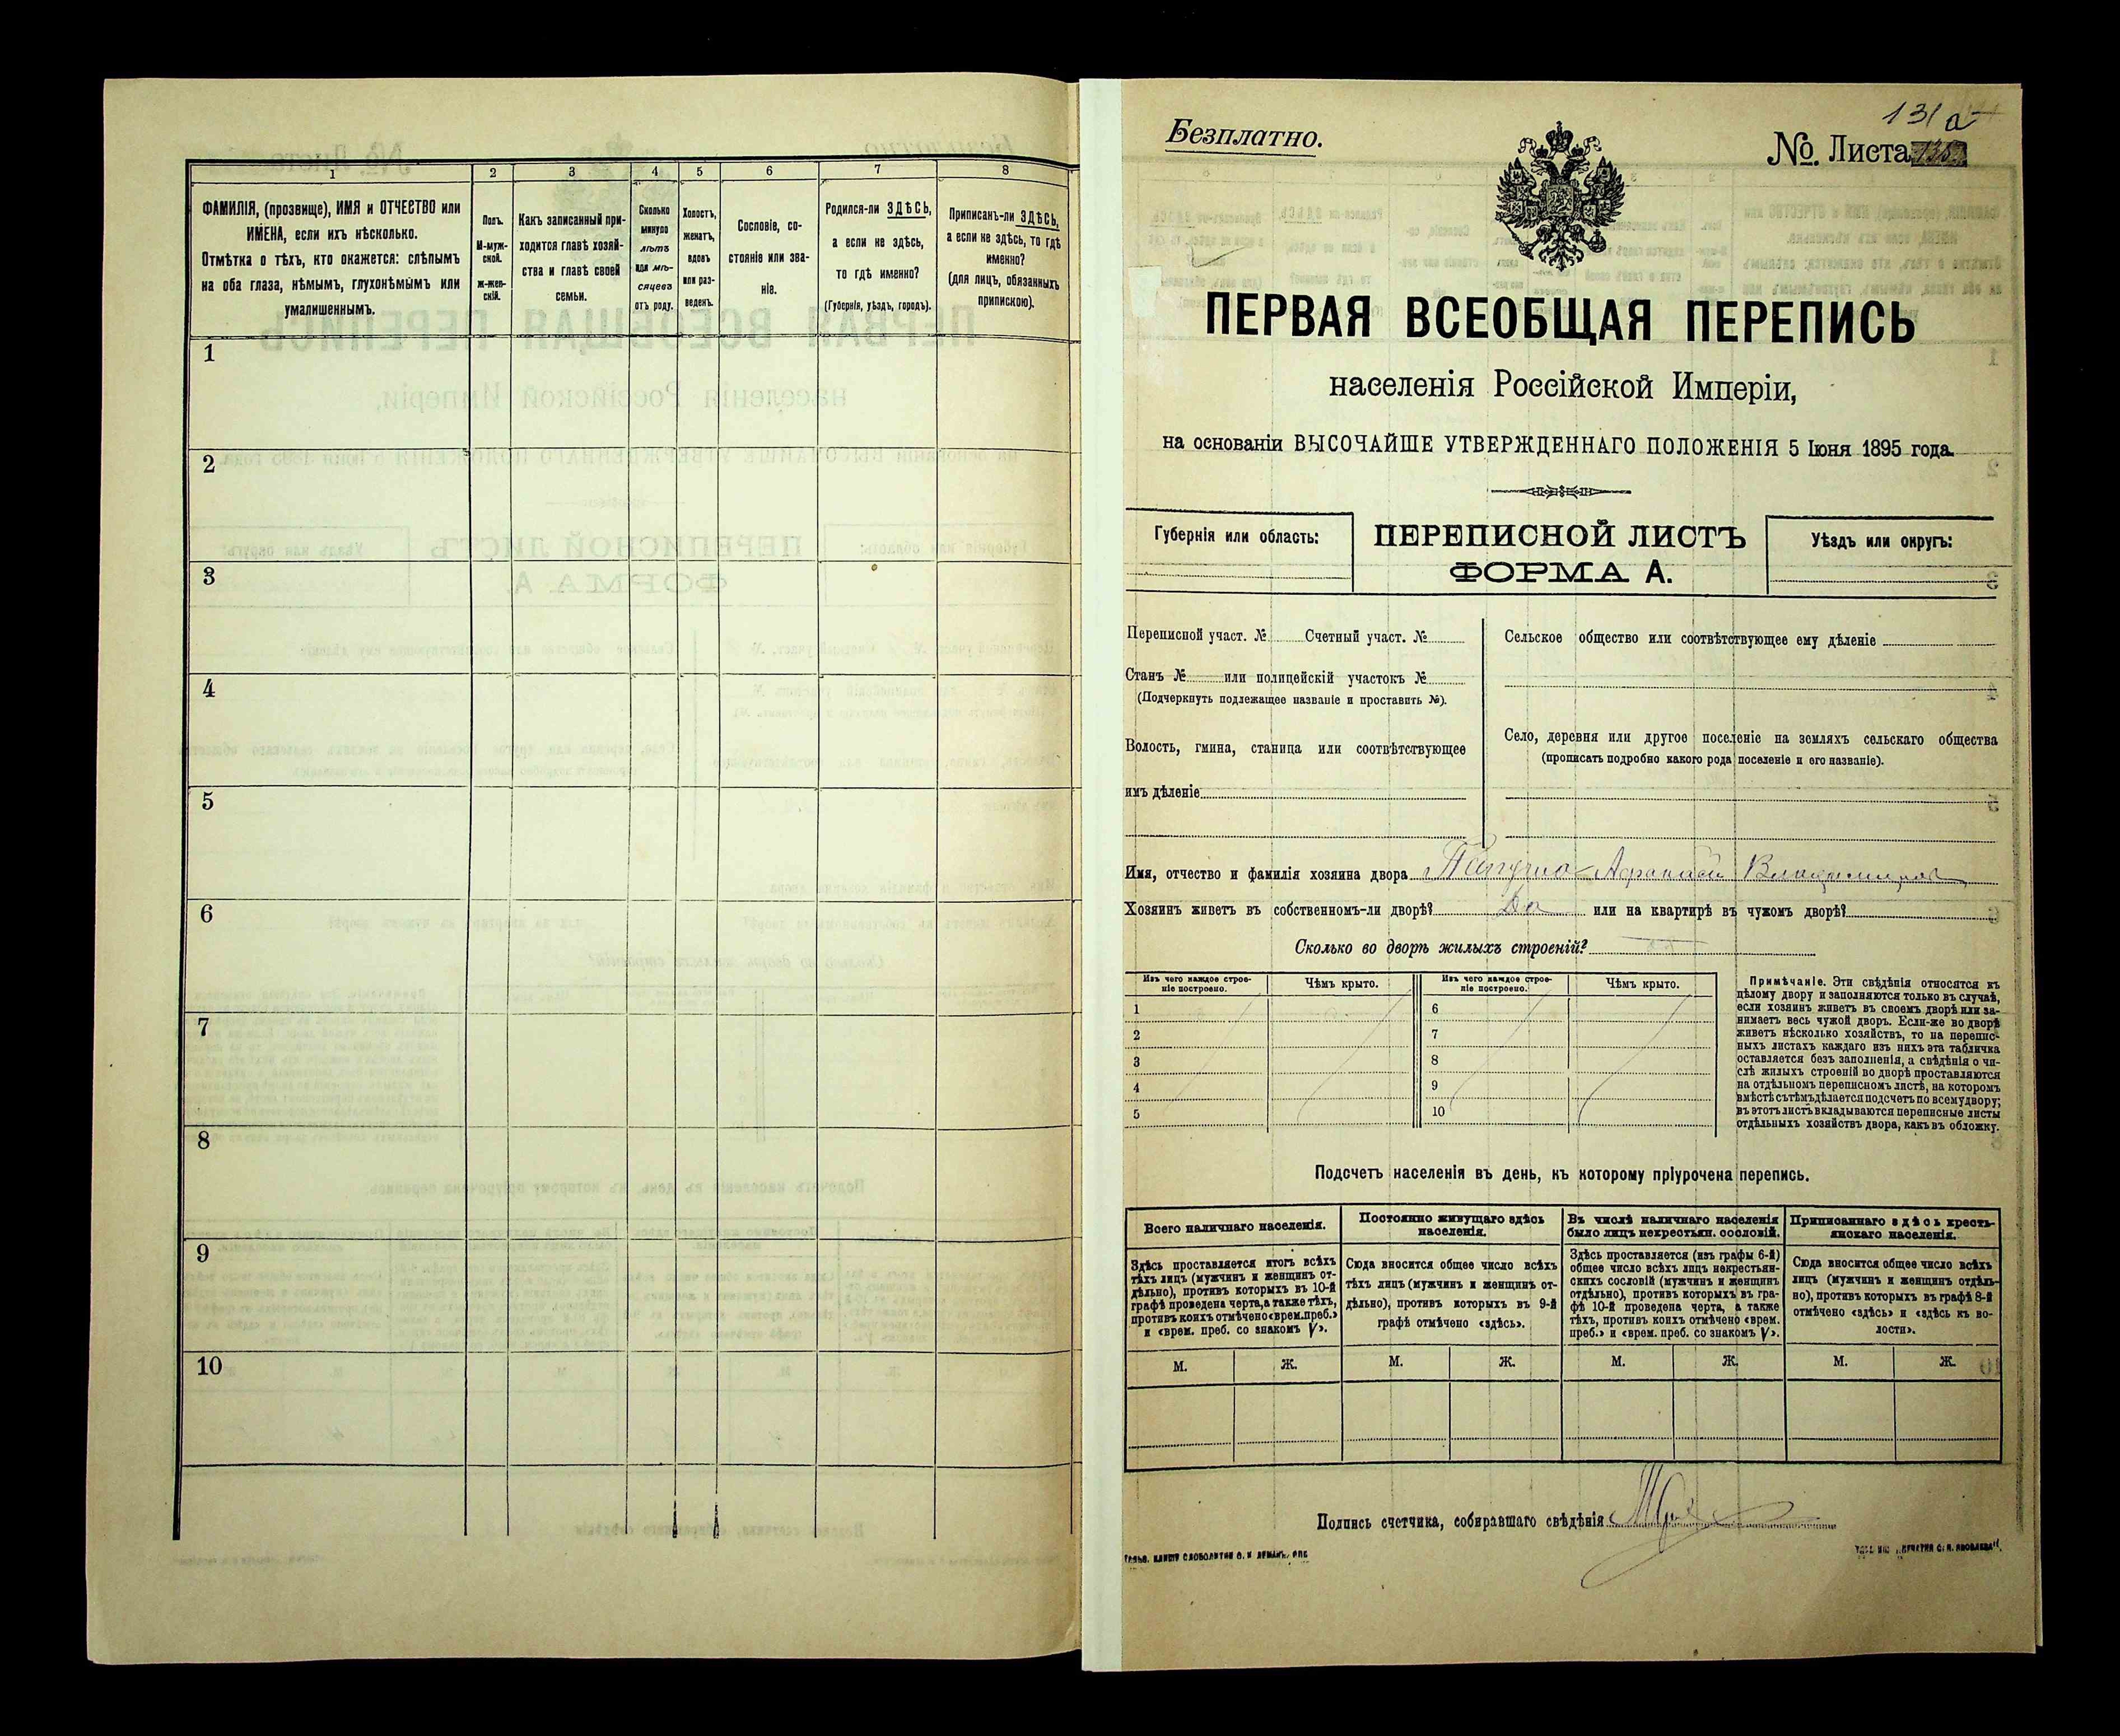 1 2 3 4 5 6 7 8
ФАМИЛІЯ, (прозвище), ИМЯ и ОТЧЕСТВО или
ИМЕНА, если ихъ нѣсколько.
Отмѣтка о тѣхъ, кто окажется: слѣпымъ
на оба глаза, нѣмымъ, глухонѣмымъ или
умалишеннымъ.
Полъ.
М-муж-
ской.
ж-жен-
скій.
Какъ записанный при-
ходится главѣ хозяй-
ства и главѣ своей
семьи.
Сколько
минуло
лѣтъ
или мѣ-
сяцевъ
отъ роду.
Холостъ,
женатъ,
вдовъ
или раз-
веденъ.
Сословіе, со-
стояніе или зва-
ніе.
Родился-ли ЗДѢСЬ,
а если не здѣсь,
то гдѣ именно?
(Губернія, уѣздъ, городъ).
Приписанъ-ли ЗДѢСЬ,
а если не здѣсь, то гдѣ
именно?
(для лицъ, обязанныхъ
припискою).
1
2
3
4
5
6
7
8
9
10
131 а
Безплатно.
№ Листа
ПЕРВАЯ ВСЕОБЩАЯ ПЕРЕПИСЬ
населенія Россійской Имперіи,
на основаніи ВЫСОЧАЙШЕ УТВЕРЖДЕННАГО ПОЛОЖЕНІЯ 5 Іюня 1895 года.
Губернія или область:
ПЕРЕПИСНОЙ ЛИСТЪ
ФОРМА А.
Уѣздъ или округъ:
Переписной участ. № Счетный участ. №
Станъ № или полицейскій участокъ №
(Подчеркнуть подлежащее названіе и проставить №).
Волость, гмина, станица или соотвѣтствующее
имъ дѣленіе
Сельское общество или соотвѣтствующее ему дѣленіе
Село, деревня или другое поселеніе на земляхъ сельскаго общества
(прописать подробно какого рода поселеніе и его названіе).
Имя, отчество и фамилія хозяина двора
Хозяинъ живетъ въ собственномъ-ли дворѣ? Да или на квартирѣ въ чужомъ дворѣ?
Сколько во дворѣ жилыхъ строеній?
Изъ чего каждое строе-
ніе построено.
Чѣмъ крыто.
Изъ чего каждое строе-
ніе построено.
Чѣмъ крыто.
1 6
2 7
3 8
4 9
5 10
Примѣчаніе. Эти свѣдѣнія относятся къ
цѣлому двору и заполняются только въ случаѣ,
если хозяинъ живетъ въ своемъ дворѣ или за-
нимаетъ весь чужой дворъ. Если-же во дворѣ
живетъ нѣсколько хозяйствъ, то на перепис-
ныхъ листахъ каждаго изъ нихъ эта табличка
оставляется безъ заполненія, а свѣдѣнія о чи-
слѣ жилыхъ строеній во дворѣ проставляются
на отдѣльномъ переписномъ листѣ, на которомъ
вмѣстѣ съ тѣмъ дѣлается подсчетъ по всему двору;
въ этотъ листъ вкладываются переписные листы
отдѣльныхъ хозяйствъ двора, какъ въ обложку.
Подсчетъ населенія въ день, къ которому пріурочена перепись.
Всего наличнаго населенія.
Здѣсь проставляется итогъ всѣхъ
тѣхъ лицъ (мужчинъ и женщинъ от-
дѣльно), противъ которыхъ въ 10-й
графѣ проведена черта, а также тѣхъ,
противъ коихъ отмѣчено «врем. преб.»
и «врем. преб. со знакомъ V».
Постоянно живущаго здѣсь
населенія.
Сюда вносится общее число всѣхъ
тѣхъ лицъ (мужчинъ и женщинъ от-
дѣльно), противъ которыхъ въ 9-й
графѣ отмѣчено «здѣсь».
Въ числѣ наличнаго населенія
было лицъ некрестьян. сословій.
Здѣсь проставляется (изъ графы 6-й)
общее число всѣхъ лицъ некрестьян-
скихъ сословій (мужчинъ и женщинъ
отдѣльно), противъ которыхъ въ гра-
фѣ 10-й проведена черта, а также
тѣхъ, противъ коихъ отмѣчено «врем.
преб.» и «врем. преб. со знакомъ V».
Приписаннаго здѣсь кресть-
янскаго населенія.
Сюда вносится общее число всѣхъ
лицъ (мужчинъ и женщинъ отдѣль-
но), противъ которыхъ въ графѣ 8-й
отмѣчено «здѣсь» и «здѣсь къ во-
лости».
М. Ж. М. Ж. М. Ж. М. Ж.
Подпись счетчика, собиравшаго свѣдѣнія